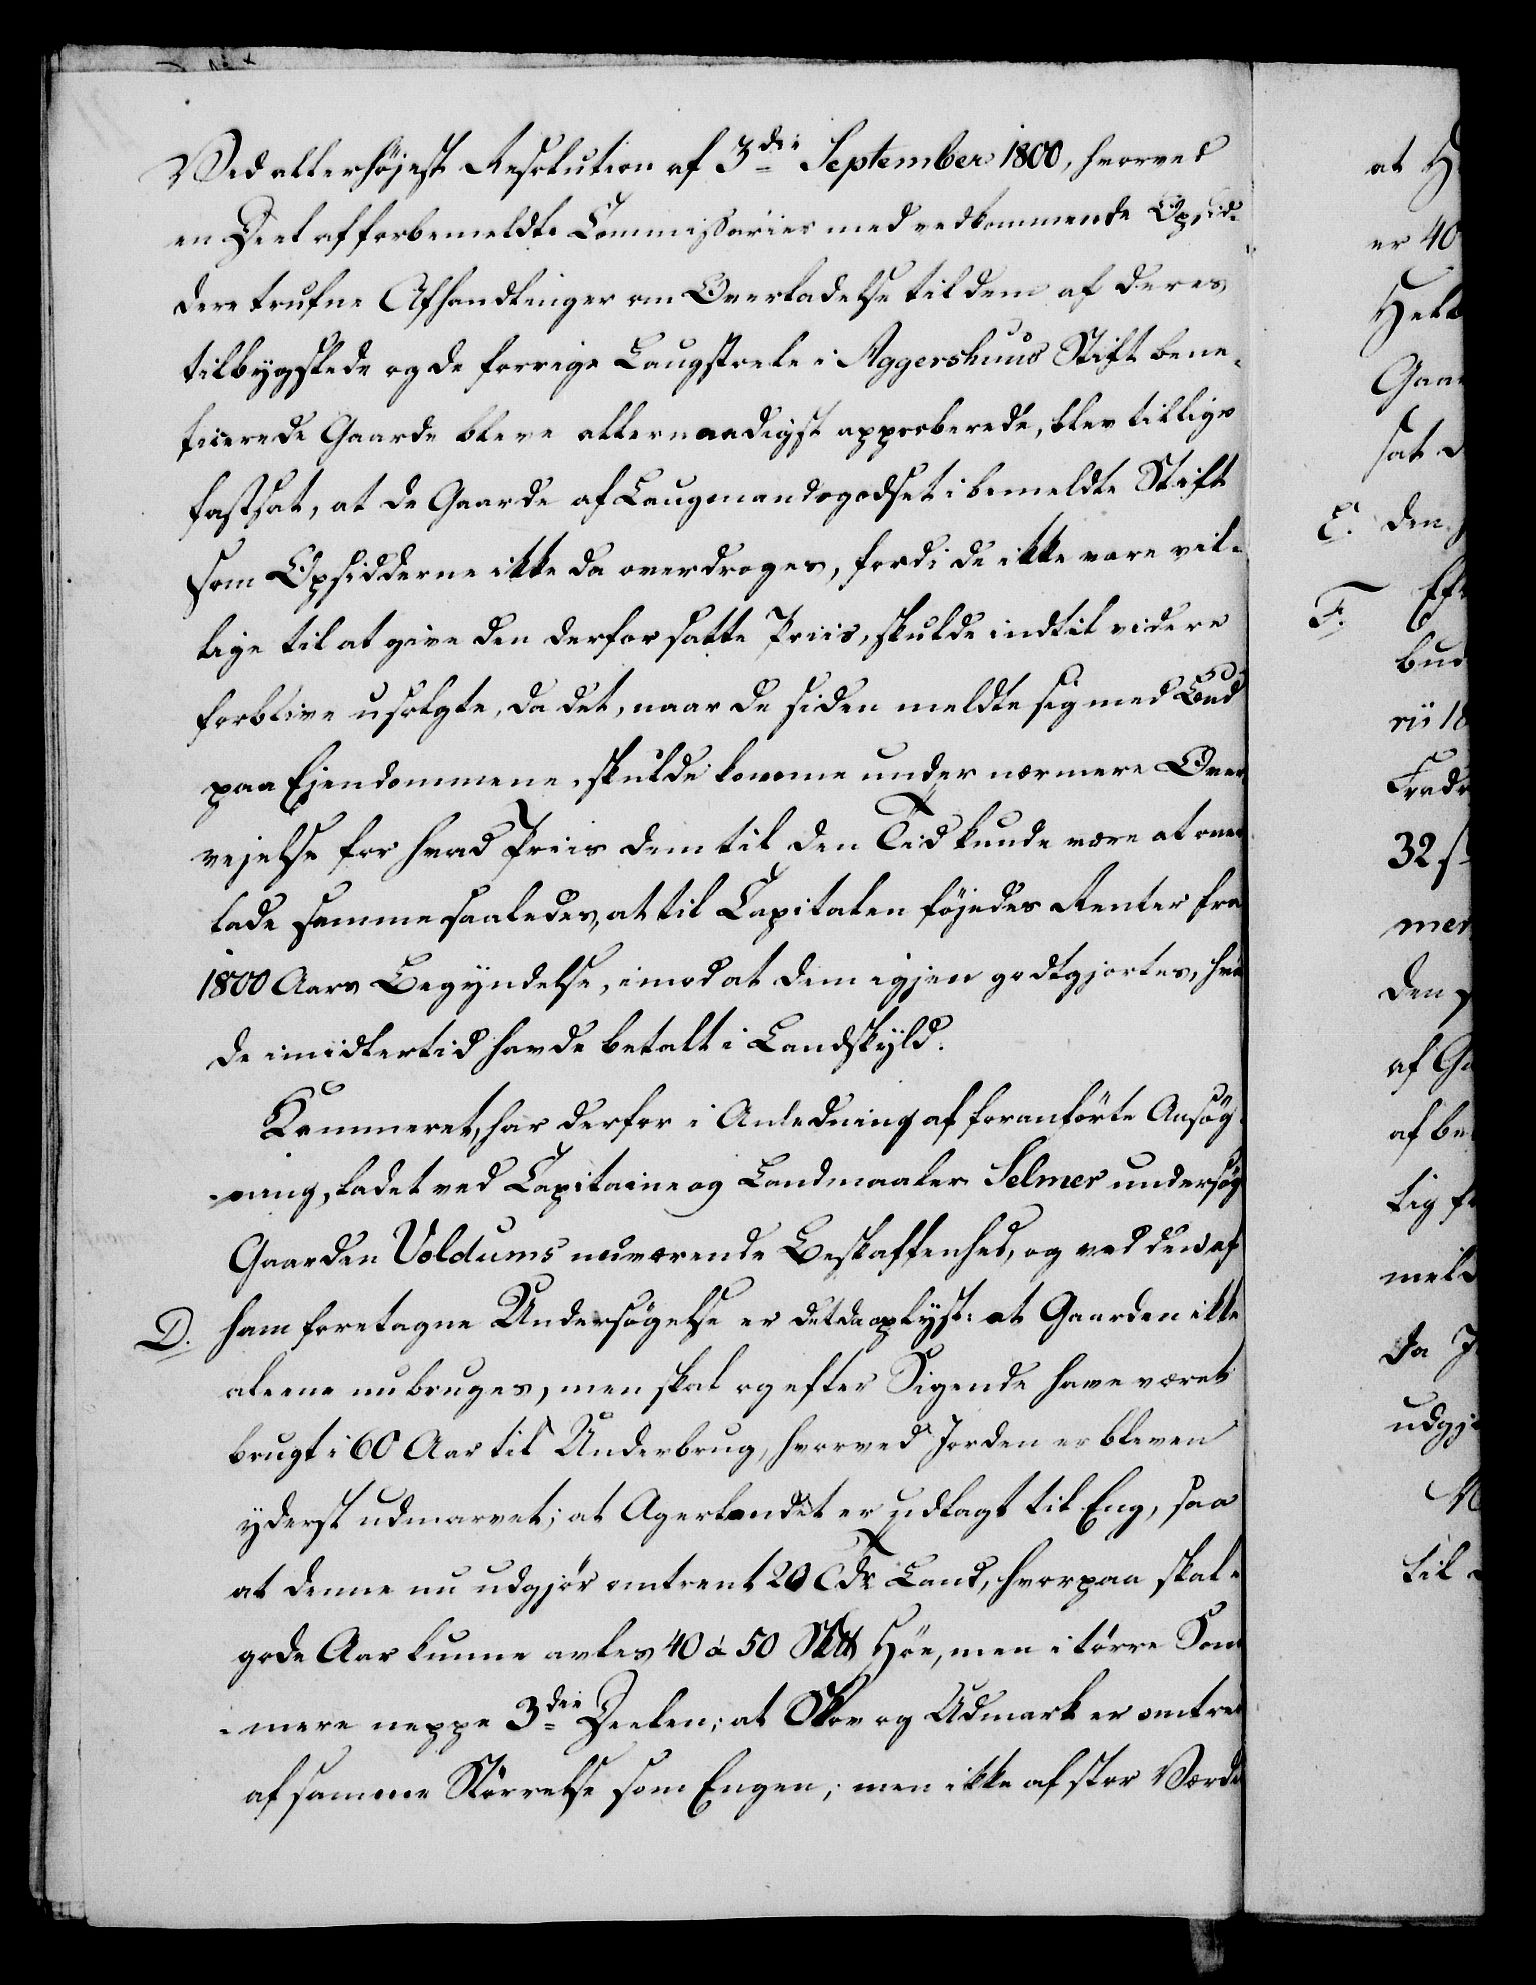 Ved allerhöjest Resolution af 3die September 1800, hvorved
en Deel af forbemeldte Commissariers med vedkommende Opsid-
dere trufne Afhandlinger om Overladelse til dem af deres
tilbygslede og de forrige Laugstole i Aggershuus Stift bene-
ficerede Gaarde bleve allernaadigst approberede, blev tillige
fastsat, at de Gaarde af Laugmandsgodset i bemeldte Stift
som Opsidderne ikke da overdroges, fordi de ikke vare vil-
lige til at give den derfor satte Priis, skulde indtil videre
forblive usolgte, da det, naar de siden meldte sig med Bud
paa Ejendommene, skulde komme under nærmere Over
vejelse for hvad Priis dem til den Tid kunde være at over
lade samme saaledes, at til Capitalen föjedes Renter fra
1800 Aars Begyndelse, imod at dem igjen godtgjortes, hva
de imidlertid havde betalt i Landskyld.
Kammeret, har derfor i Anledning af foranförte Ansög-
ning, ladet ved Capitaine og Landmaaler Selmer undersög
Gaarden Voldums nuværende Beskaffenhed, og ved den af
D. ham foretagne Undersögelse er det da oplyst: at Gaarden ikke
aleene nu bruges, men skal og efter Sigende have været
brugt i 60 Aar til Underbrug, hvorved Jorden er bleven
yderst udmarvet; at Agerlandet er udlagt til Eng, saa
at denne nu udgjör omtrent 20 Tdr Land, hvorpaa skal
gode Aar kunne avles 40 à 50 Höe, men i törre Som
mere neppe 3die Deelen; at Skov og Udmark er omtren
af samme Störrelse som Engen; men ikke af stor Værdi
at H
er 40
Gaar
sat
E. den
F. Eft
bud
rii 18
32 s
mer
den
af Ga
af be
lig f
mel
da J
udgj
til